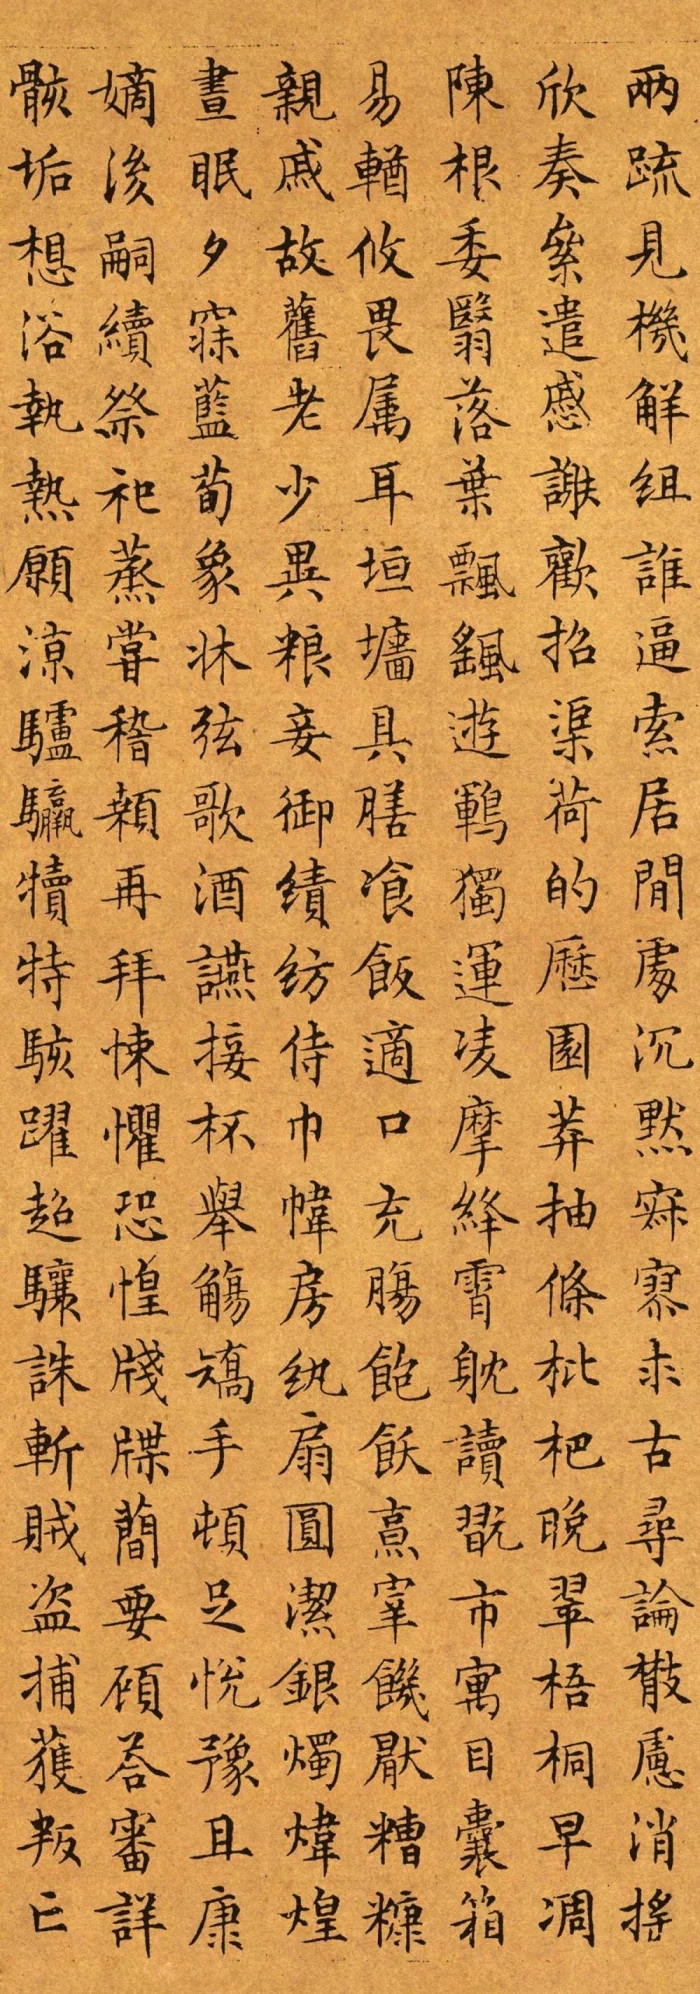 兩疏見機解組誰逼索居閒處沉默寂寥求古尋論散慮消搖
欣奏累遣慼謝歡招渠荷的歷園莽抽條枇杷晚翠梧桐早凋
陳根委翳落葉飄颻遊鵾獨運凌摩絳霄躭讀翫市寓目囊箱
易輶攸畏属耳垣墻具膳飡飯適口充腸飽飫烹宰饑厭糟糠
親戚故舊老少異粮妾御績紡侍巾幃房紈扇圓潔銀燭煒煌
晝眠夕寐藍荀象牀弦歌酒讌接杯舉觴矯手頓足悅豫且康
嫡後嗣續祭祀蒸嘗稽顙再拜悚懼恐惶牋牒蕳要顧荅審詳
骸垢想浴執熱願涼驢騾犢特駭躍超驤誅斬賊盜捕獲叛亡